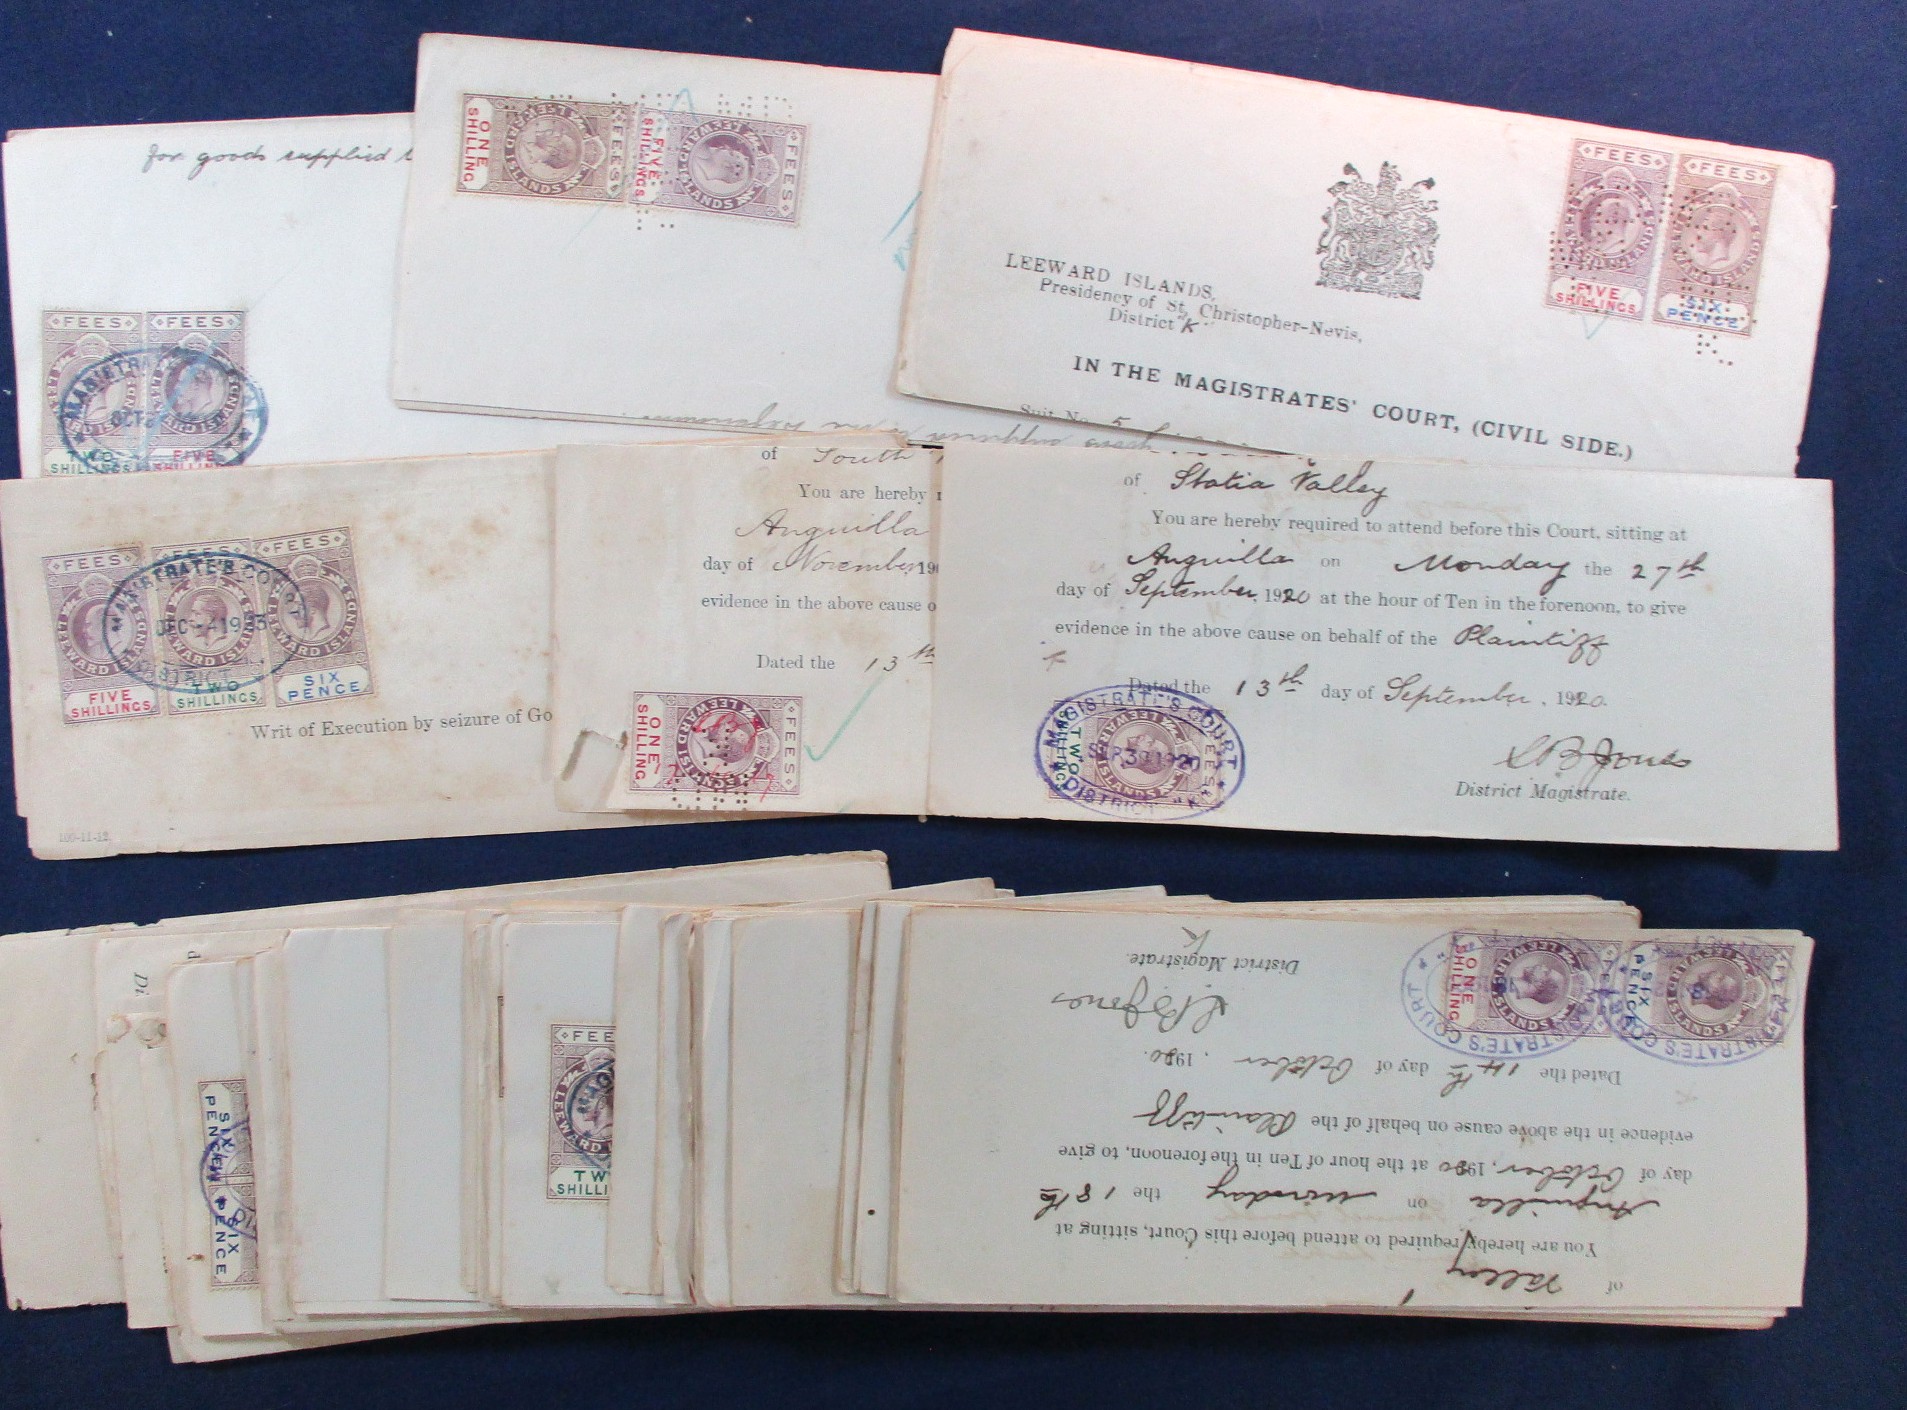 for goods supplied
FEES FEES
LEEWARD ISLANDS
TWO SHILLINGS
FIVE SHILLINGS
MAGISTRATE'S
OCT
FEES
LEEWARD ISLANDS
ONE SHILLING
FEES
LEEWARD ISLANDS
FIVE SHILLINGS
LEEWARD ISLANDS.
Presidency of St. Christopher-Nevis,
District "K"
IN THE MAGISTRATES' COURT, (CIVIL SIDE.)
Suit No. 5
FEES
LEEWARD ISLANDS
FIVE SHILLINGS
FEES
LEEWARD ISLANDS
SIX PENCE
FEES
LEEWARD ISLANDS
FIVE SHILLINGS
FEES
LEEWARD ISLANDS
TWO SHILLINGS
FEES
LEEWARD ISLANDS
SIX PENCE
MAGISTRATE'S COURT
DEC -4 1913
DISTRICT
Writ of Execution by seizure of Go
100-11-12.
of South
You are hereby
Anguilla
day of November 19
evidence in the above cause o
Dated the 13th
ONE SHILLING
LEEWARD ISLANDS
FEES
of Statia Valley
You are hereby required to attend before this Court, sitting at
Anguilla on Monday the 27th
day of September, 1920 at the hour of Ten in the forenoon, to give
evidence in the above cause on behalf of the Plaintiff
Dated the 13th day of September, 1920.
S B Jones
District Magistrate.
TWO SHILLINGS
FEES
MAGISTRATE'S COURT
SEP 30 1920
DISTRICT "K"
Di
SIX PENCE
SIX PENCE
FEE
LEEWARD
TW
SHILLI
of Valley
You are hereby required to attend before this Court, sitting at
Anguilla on Monday the 18th
day of October, 1920 at the hour of Ten in the forenoon, to give
evidence in the above cause on behalf of the Plaintiff
Dated the 14th day of October, 1920.
S B Jones
District Magistrate.
K
ONE SHILLING
LEEWARD ISLANDS
SIX PENCE
LEEWARD ISLANDS
MAGISTRATE'S COURT